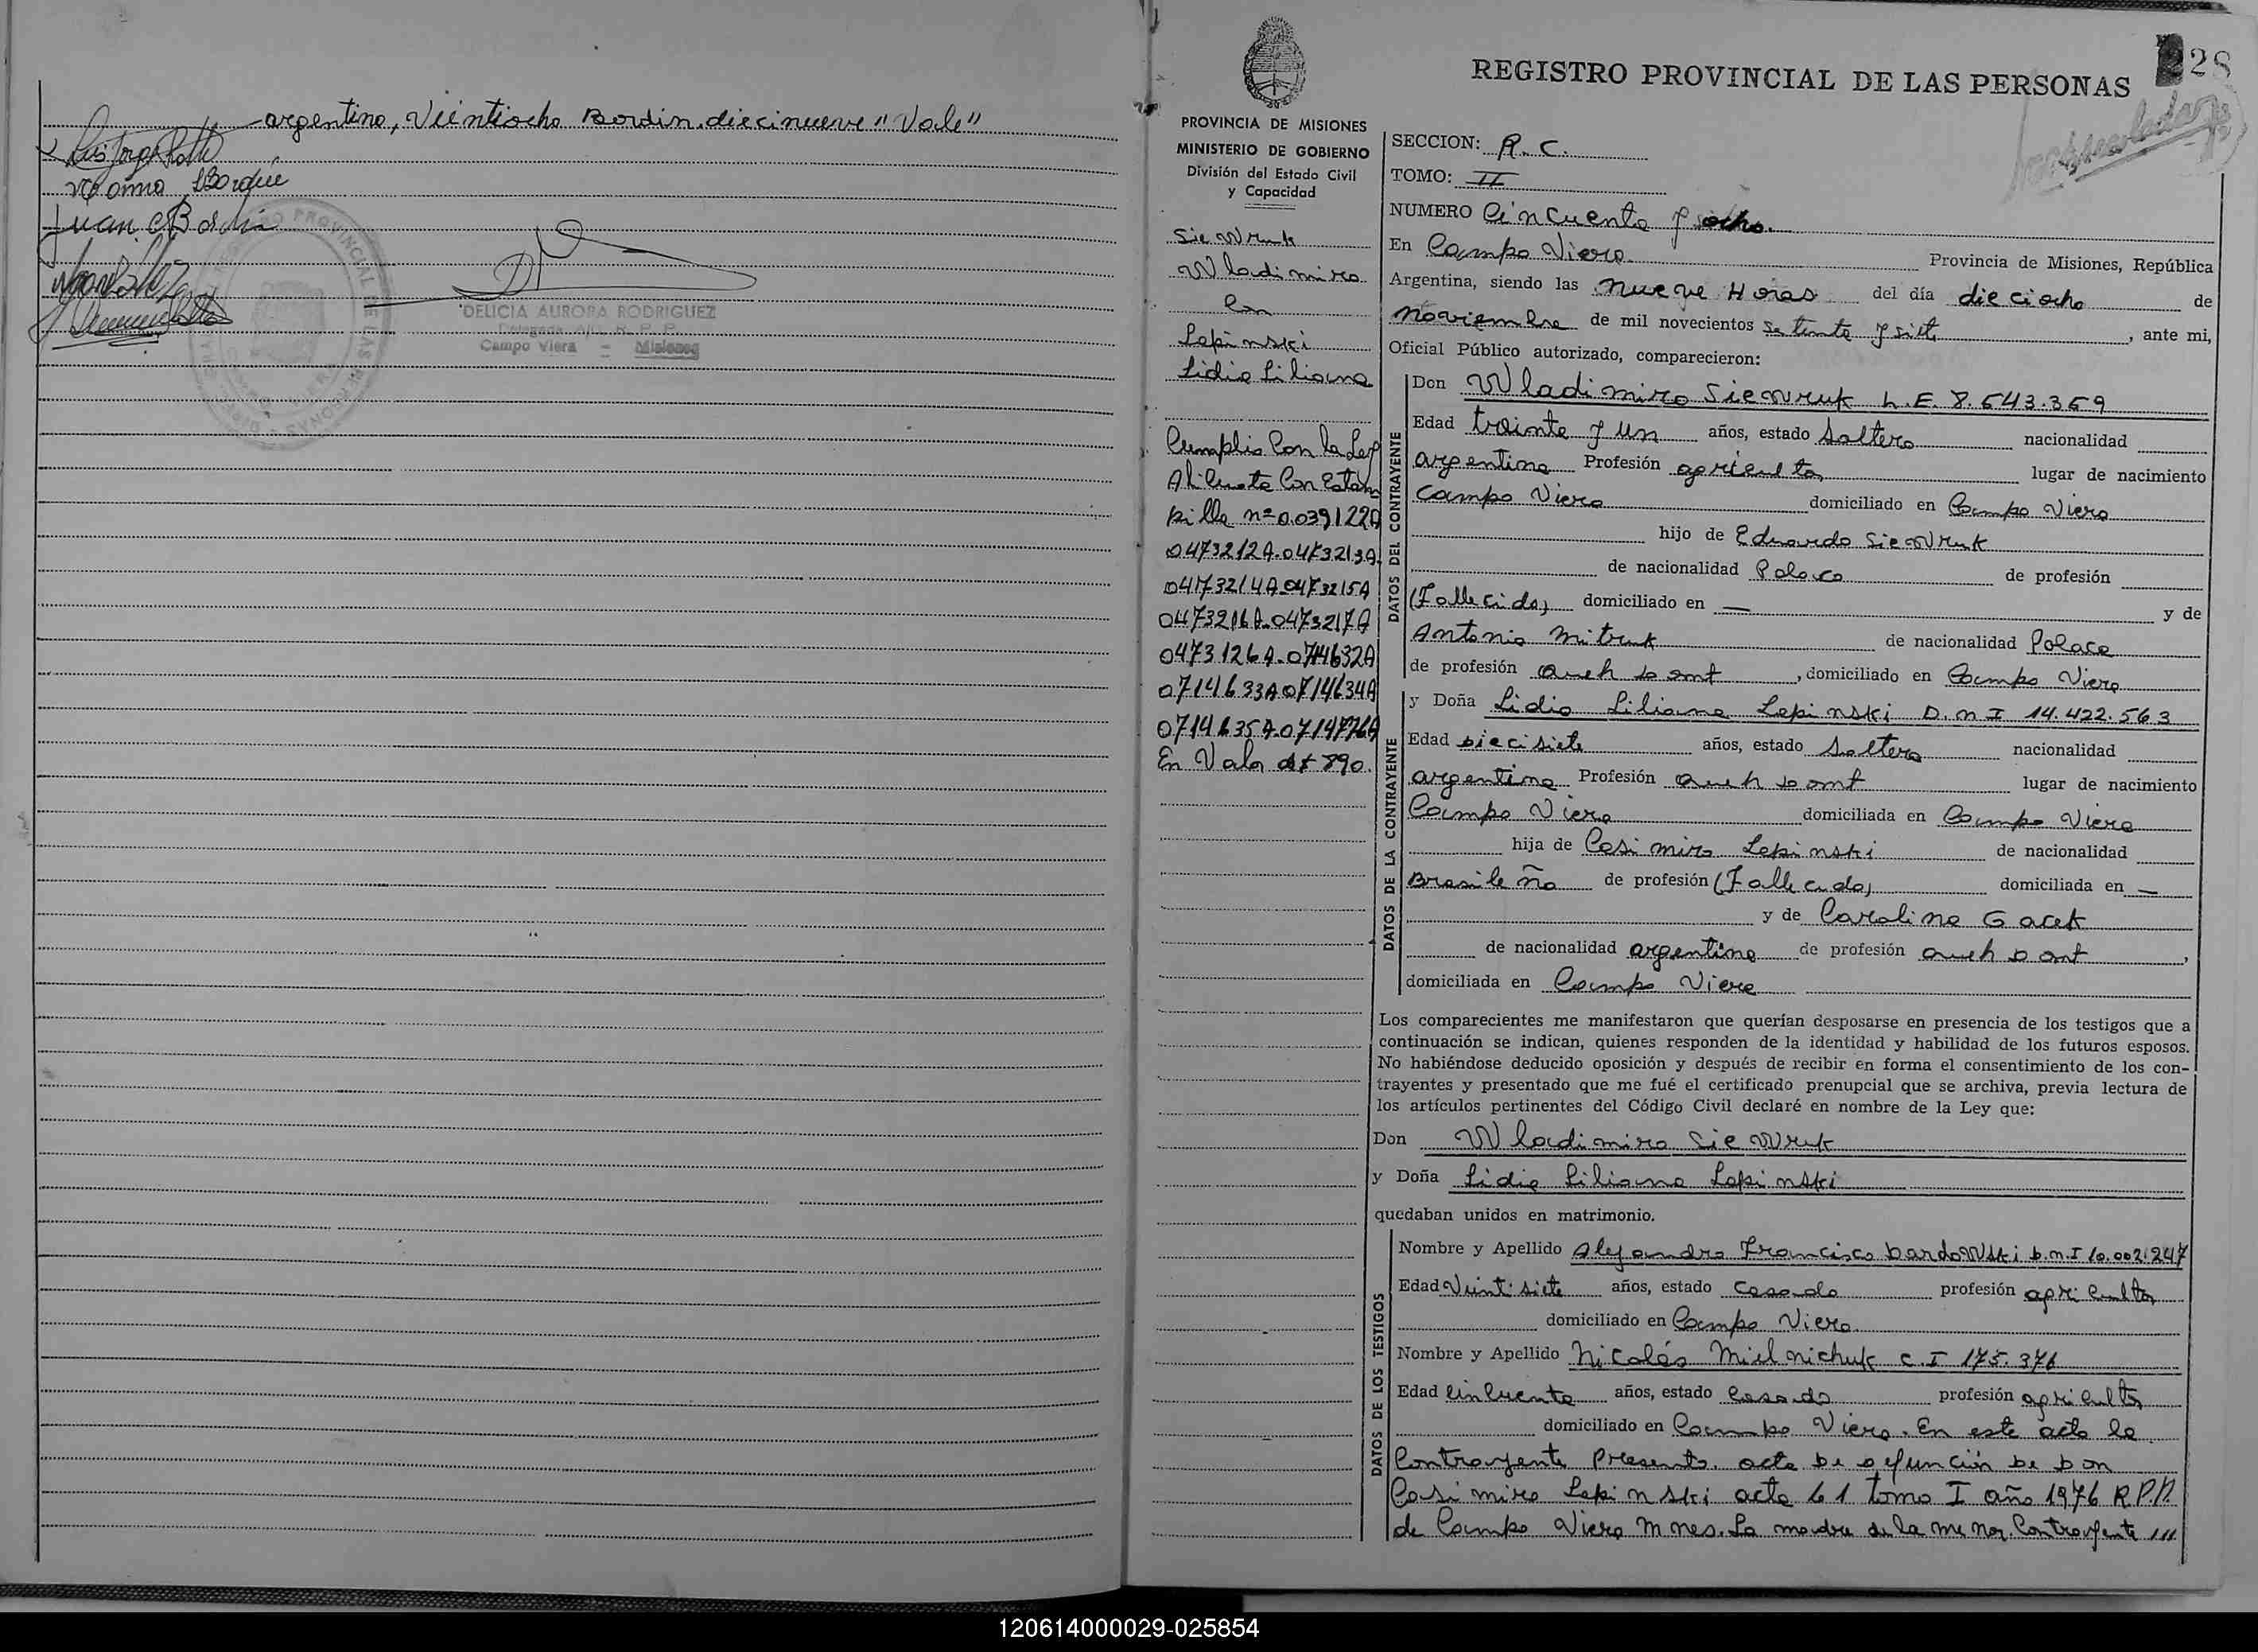 argentino, Veintiocho Bordin, diecinueve "Vale"
Juan
DELICIA AURORA RODRIGUEZ
Campo Viera - Misiones
28
REGISTRO PROVINCIAL DE LAS PERSONAS
PROVINCIA DE MISIONES
MINISTERIO DE GOBIERNO
División del Estado Civil
y Capacidad
Siewruk
Wladimiro
Con
Lepinski
Lidia Liliana
Cumplio Con la Ley
Alicuota Con Estam
pilla nº 0.039122A
0473212A-0473213A
0473214A-0473215A
0473216A-0473217A
0473126A-0714632A
0714633A 0714634A
0714635A-0714776A
En Valor de $ 890.
SECCION: R. C.
TOMO: II
NUMERO Cincuenta y ocho.
En Campo Viera. Provincia de Misiones, República
Argentina, siendo las nueve Horas del día dieciocho de
noviembre de mil novecientos setenta y siete, ante mi,
Oficial Público autorizado, comparecieron:
DATOS DEL CONTRAYENTE
Don Wladimiro Siewruk L.E. 8.543.369
Edad treinta y un años, estado Soltero nacionalidad
argentina Profesión agricultor lugar de nacimiento
Campo Viera domiciliado en Campo Viera
hijo de Eduardo Siewruk
de nacionalidad Polaca de profesión
(Fallecido) domiciliado en — y de
Antonia Mitruk de nacionalidad Polaca
de profesión queh domt, domiciliado en Campo Viera
DATOS DE LA CONTRAYENTE
y Doña Lidia Liliana Lepinski D.n I 14.422.563
Edad Diecisiete años, estado Soltera nacionalidad
argentina Profesión queh domt lugar de nacimiento
Campo Viera domiciliada en Campo Viera
hija de Casimiro Lepinski de nacionalidad
Brasileño de profesión (Fallecido) domiciliada en —
y de Carolina Gacek
de nacionalidad argentina de profesión queh domt,
domiciliada en Campo Viera
Los comparecientes me manifestaron que querían desposarse en presencia de los testigos que a
continuación se indican, quienes responden de la identidad y habilidad de los futuros esposos.
No habiéndose deducido oposición y después de recibir en forma el consentimiento de los con-
trayentes y presentado que me fué el certificado prenupcial que se archiva, previa lectura de
los artículos pertinentes del Código Civil declaré en nombre de la Ley que:
Don Wladimiro Siewruk
y Doña Lidia Liliana Lepinski
quedaban unidos en matrimonio.
DATOS DE LOS TESTIGOS
Nombre y Apellido Alejandro Francisco Dardowski D.n.I 10.002.247
Edad Veintisiete años, estado Casado profesión agricultor
domiciliado en Campo Viera.
Nombre y Apellido Nicolás Mielnichuk C.I 175.376
Edad Cincuenta años, estado Casado profesión agricultor
domiciliado en Campo Viera. En este acto la
Contrayente Presenta acta de defunción de Don
Casimiro Lepinski acta 61 tomo I año 1976 R.P.P.
de Campo Viera Mnes. La madre de la menor Contrayente ///
120614000029-025854